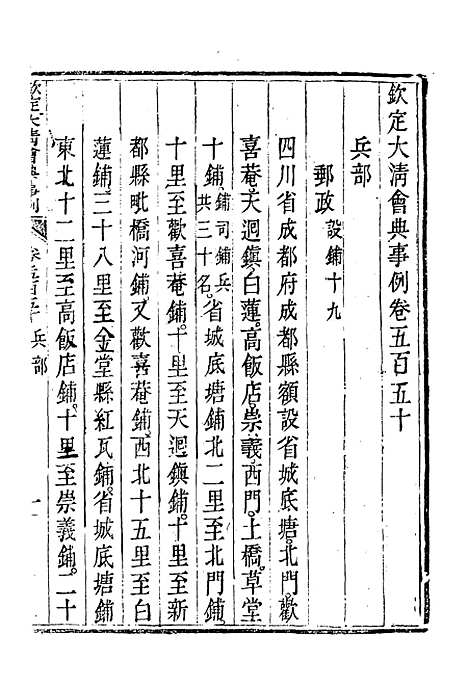 欽定大清會典事例卷五百五十
兵部
郵政設鋪十九
四川省成都府成都縣額設省城底塘。北門。歡
喜菴。天迴鎮。白蓮。高飯店。崇義。西門。土橋。草堂
十鋪。鋪司鋪兵共三十名。省城底塘鋪北二里至北門鋪
十里至歡喜菴鋪。十里至天迴鎮鋪。十里至新
都縣毗橋河鋪。又歡喜菴鋪。西北十五里至白
蓮鋪。三十八里至金堂縣紅瓦鋪。省城底塘鋪
東北十二里至高飯店鋪。十里至崇義鋪。二十
欽定大清會典事例 卷五百五十 兵部 一